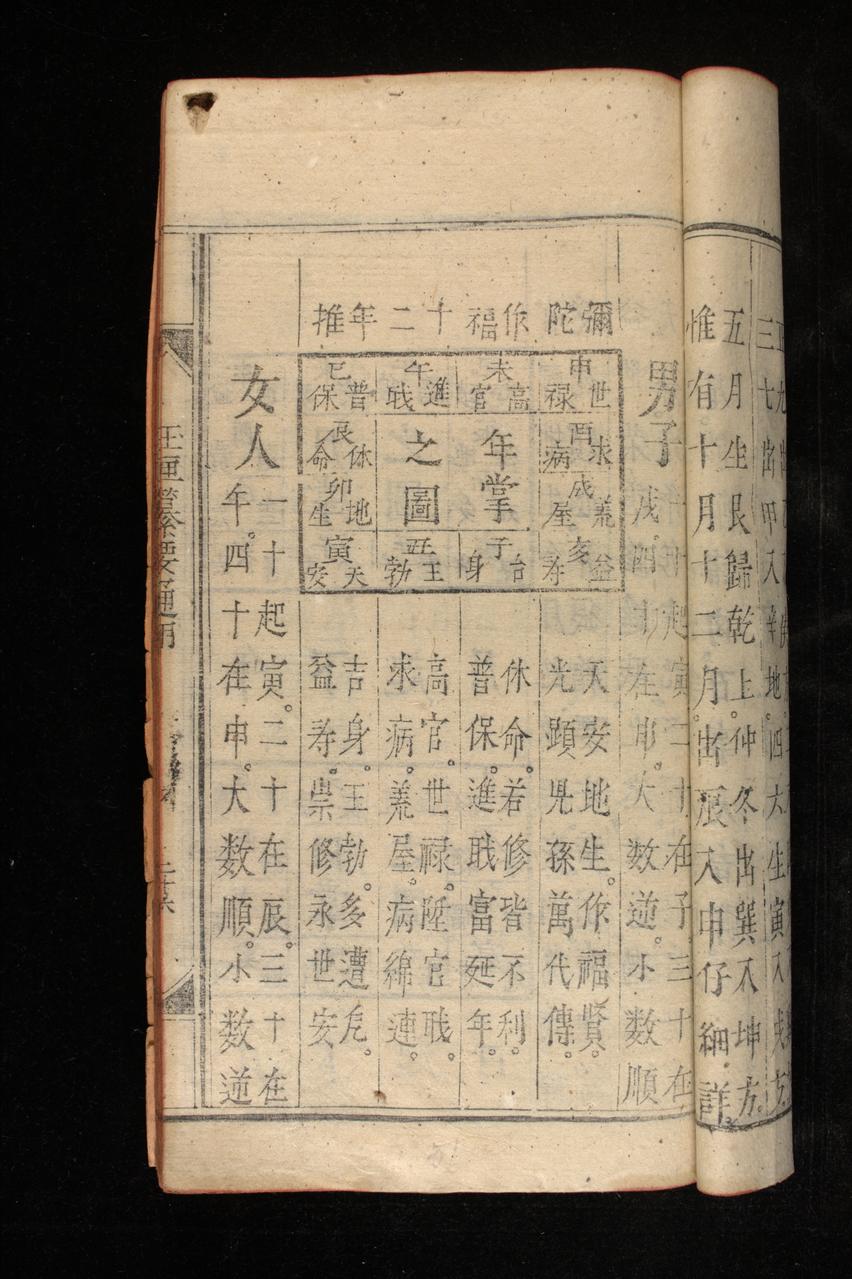 五月生艮歸乾上。仲冬出巽入坤方。
惟有十月十二月。出辰入申仔細詳。
男子
一十起寅二十在子三十在
戌。四十在申。大数逆。小数順
彌陀作福十二年推
申世禄
未高官
午進戢
巳普保
酉求病
年掌
之圖
辰休命
戌羗屋
卯地生
亥益寿
子台身
丑王勃
寅天安
天安地生。作福賢。
光顕児孫萬代傳。
休命。若修皆不利。
普保。進戢富延年。
高官。世禄。陞官戢。
求病。羗屋。病綿連。
吉身。王勃。多遭危。
益寿。崇修永世安
女人
一十起寅。二十在辰。三十在
午。四十在申。大数順。小数逆
玉匣 通